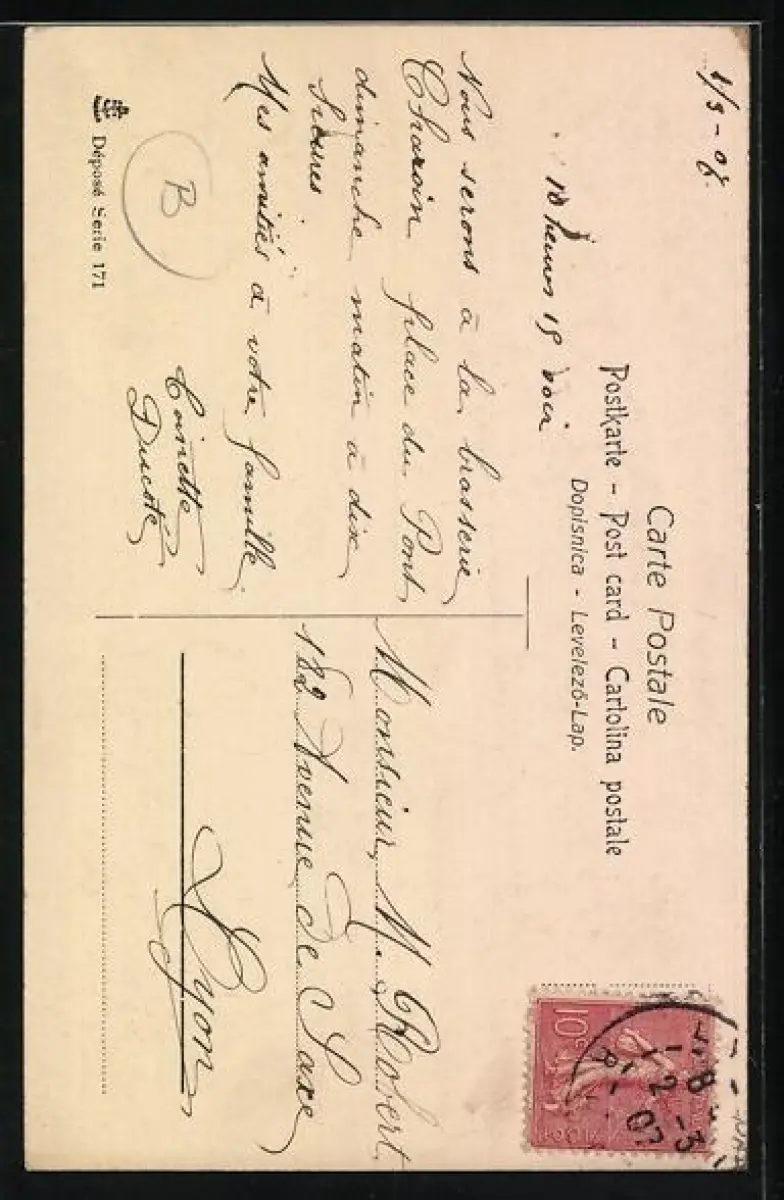 Carte Postale
Postkarte - Post card - Cartolina postale
Dopisnica - Levelező-Lap.
1/3 - 07
10 heures 15 soir
Nous serons à la brasserie
Charoin place du Pont
dimanche matin à dix
heures
Mes amitiés à votre famille
Ducoté
B
Déposé Serie 171
Monsieur M. Robert
122 Avenue de Saxe
Lyon
10 c
8
1 2 - 3
07